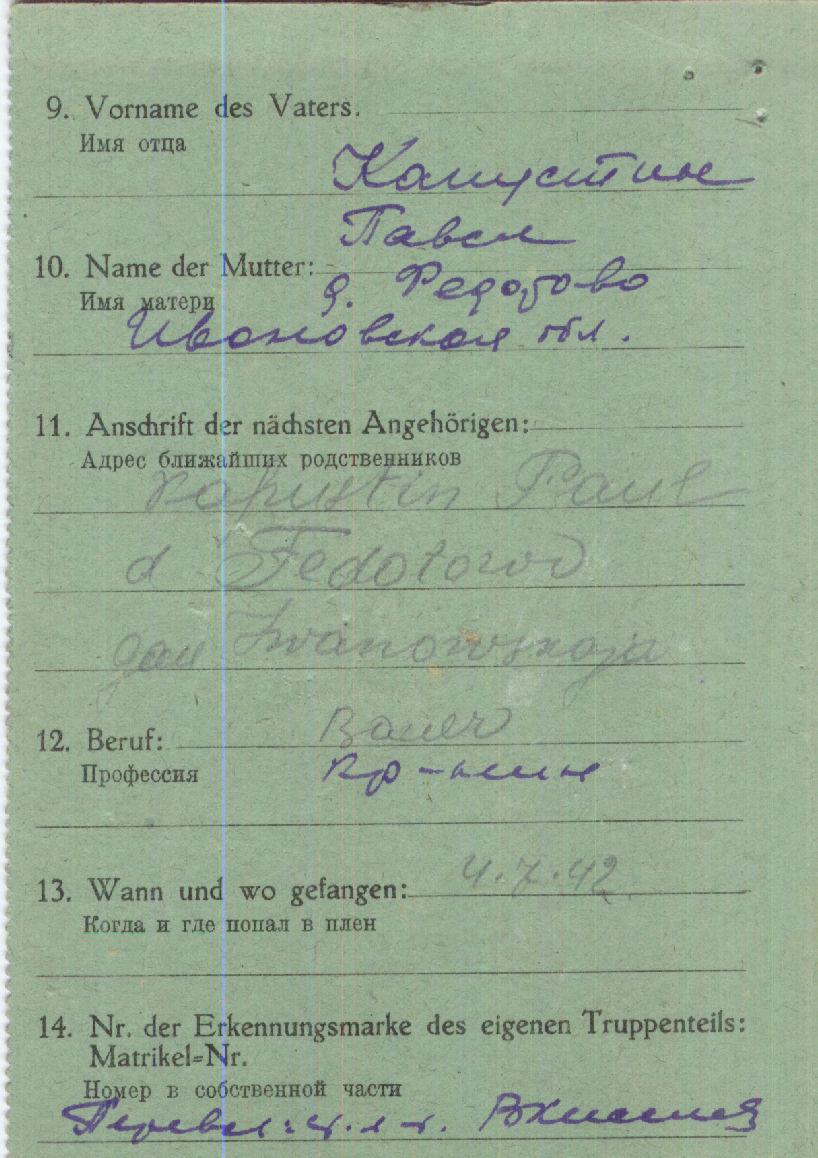 9. Vorname des Vaters.
Имя отца
Капустин
Павел
10. Name der Mutter:
д. Федотово
Имя матери
Ивановская обл.
11. Anschrift der nächsten Angehörigen:
Адрес ближайших родственников
Kapustin Paul
d. Fedotowo
Iwanowskaja
12. Beruf: Bauer
Профессия кр-нин
13. Wann und wo gefangen: 4.7.42
Когда и где попал в плен
14. Nr. der Erkennungsmarke des eigenen Truppenteils:
Matrikel=Nr.
Номер в собственной части
Перевел: